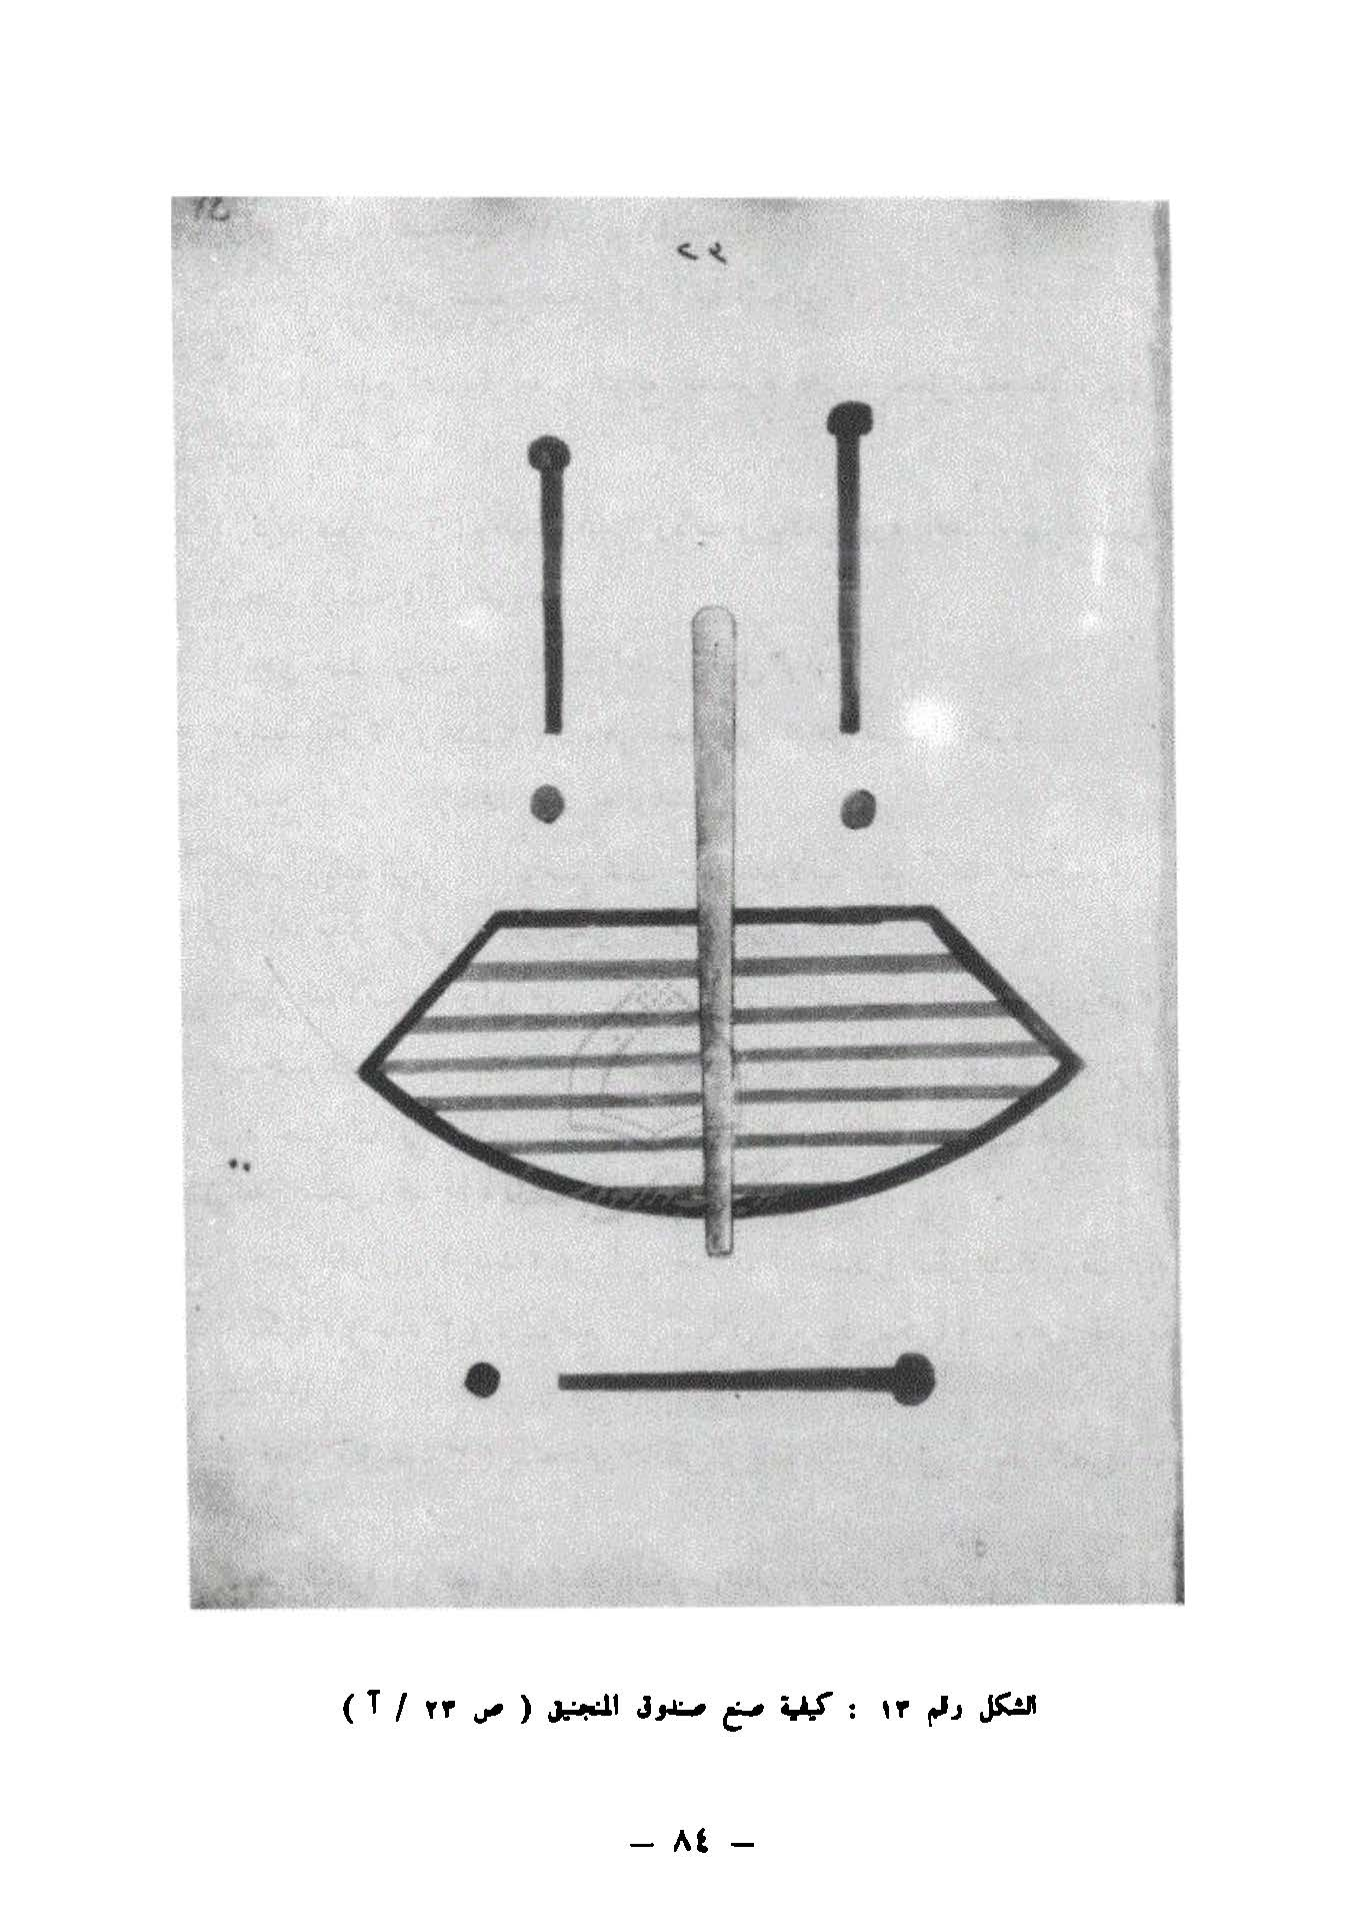 ٢٣
الشكل رقم ١٣ : كيفية صنع صندوق المنجنيق ( ص ٢٣ / آ )
— ٨٤ —